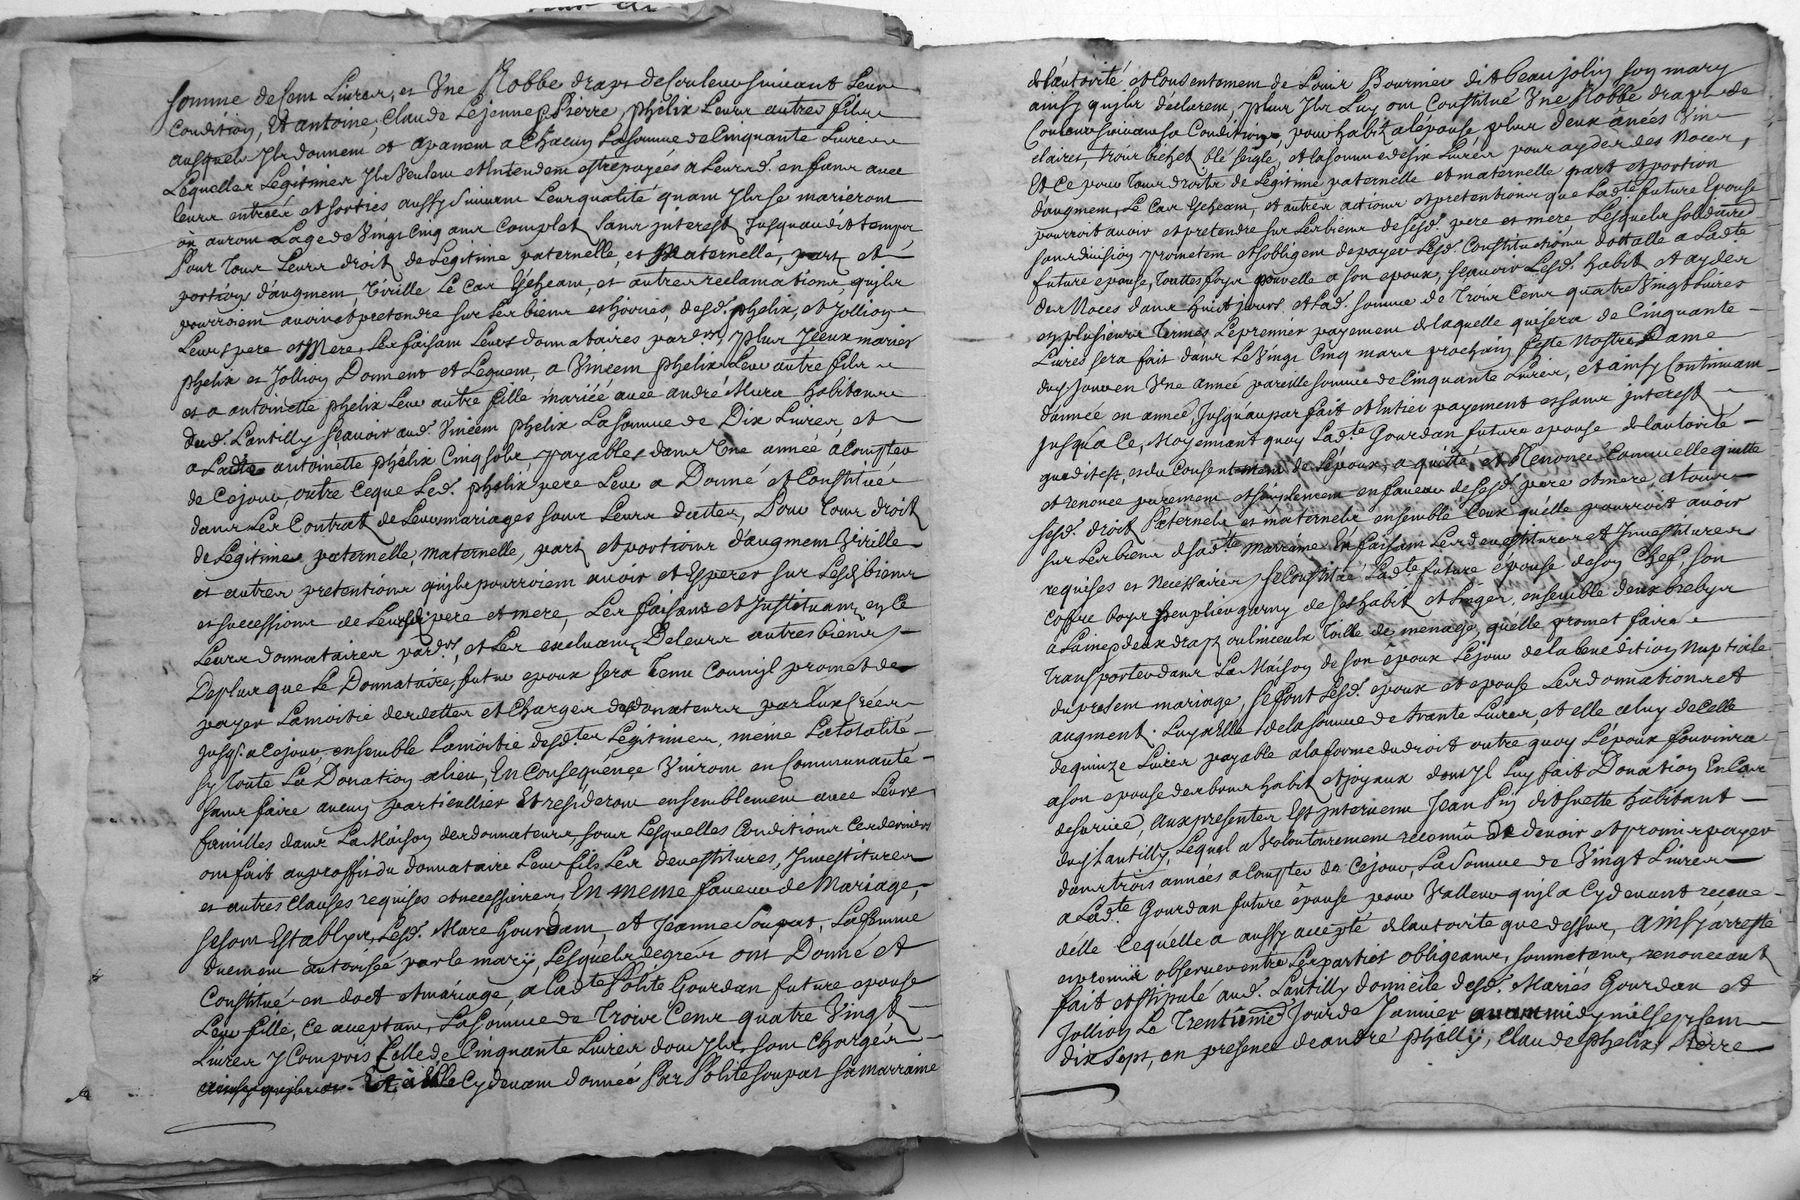 somme de Cent Livres, et Une Robbe drapt de Couleur suivant Leur
Condition, Et antoine, Claude Lejeune, Pierre phelix Leurs autres fils
ausquels Ils donnent et apanent a Chacun La somme de Cinquante Livres
Lequelles Legitimes Ils Veulent et Entendent estre payées a Leursd. enfans avec
leurs entrées et sorties aussy suivant Leur qualité quant Ils se marieront
ou auront Lage de Vingt Cinq ans Complet sans jnterest Jusquaudit temps
Pour Tous Leurs droit de Legitime paternelle, et Maternelle, part et
portion d'augment, Virille Le Cas Escheant, et autres reclamations, quils
pourroient avoir et pretendre sur Les biens et hoiries, desd. phelix, et Jollion
Leurs pere et Mere, Les faisant Leurs donnataires parders, plus Jceux mariés
phelix et Jollion Donnent et Leguent, a Vincent phelix Leur autre fils
et a antoinette phelix Leur autre fille mariée avec andré Mure habitans
dud. Lantilly scavoir aud. Vincent phelix La somme de Dix Livres, et
a Ladte antoinette phelix Cinq sols payables dans Une année a Compter
de Cejour, outre Ceque Led. phelix pere Leur a Donné et Constitué
dans Les Contrat de Leurs mariages sous Leurs dattes, Pour Tous droit
de Legitimes paternelle, maternelle, part et portions d'augment Virille
et autres pretentions quils pourroient avoir et Esperer sur Lesd. biens
et successions de Leursd. pere et mere, Les faisans et Instituant en Ce
Leurs donnataires parders, et Les excluant De Leurs autres biens
Deplus que Le Donnataire, futur epoux sera Tenu Comme il promet de
payer La moitié des dettes et Charges desd. donateurs par Eux Créés
jusq. a Cejour, ensemble La moitié desdtes Legitimes, même La totalité
sy Toute La Donation a lieu, En Consequence Vivront en Communauté
sans faire aucun particullier Et resideront ensemblement avec Leurs
familles dans La Maison des donnateurs, sous Lesquelles Conditions Ces derniers
ont fait au proffit du donnataire Leur fils Les devestitures, Jnvestitures
et autres Clauses requises et necessaires, En meme faveur de Mariage,
se sont Establys, Lesd. Marc Gourdan, et Jeanne Soupat, La femme
duement autorisée par le mary, Lesquels degrés ont Donné et
Constitué en doct et mariage, a Ladte Polite Gourdan future epouse
Leur fille, Ce aceptant, La somme de Trois Cens quatre Vingt
Livres y Compris Celle de Cinquante Livres dont Ils sont Chargés
Et a Elle Cydevant donnée Par Polite Soupat sa marraine
de l'autorité et Consentement de Louis Bournier dit Beaujolin son mary
ainsy quils declarent, plus Ils Luy ont Constitué Une Robbe drapt de
Couleur suivant sa Condition, pour habit a lépouse plus deux anées Vin
clairet, trois bichet blé seigle, et la somme de six Livres pour ayder des Noces,
Et Ce pour Tous droits de Legitime paternelle et maternelle part et portion
d'augment, Le Cas Escheant, et autres actions et pretentions que Ladte future Epouse
pourroit avoir et pretendre sur Les biens de sesd. pere et mere Lesquels solidairemt
sans division promettent et s'obligent de payer Lesd. Constitutions dottalle a Ladte
future epouse, Touttesfoys parvelle a son epoux, scavoir Lesd. habit et ayder
des Noces dans huict jours, et Lad. somme de Trois Cens quatre Vingt Livres
en plusieurs Termes, Le premier payement de laquelle qui sera de Cinquante
Livres sera fait dans Le Vingt Cinq mars prochain feste Nostre Dame
du jour en Une année pareille somme de Cinquante Livres, et ainsy Continuant
dannée en année, Jusqu'au parfait et Entier payement et sans jnterest
jusqu'a Ce, Moyennant quoy Ladte Gourdan future epouse de l'autorité
que dit est, et du Consentement de L'époux, a quitté, et Renoncé Comme elle quitte
et renonce purement et simplement en faveur de sesd. pere et mere a tous
sesd. droit Paternels et maternels ensemble Ceux qu'elle pourroit avoir
sur Les biens de sadte marraine En faisant Les devestitures et Jnvestitures
requises et necessaires, se Constitue Ladte future épouse de son Chef, son
coffre boys peuplier garny de ses habit et linges, ensemble deux brebys
a Laine, deux draps ou linceuls Toille de menage, quelle promet faire
transporter dans La Maison de son époux Lejour de la benediction Nuptiale
du present mariage, se font Lesd. epoux et epouse Les donnations et
augment. Luy a Elle de la somme de trante Livres, et elle a luy de Celle
de quinze Livres payable a la forme du droit outre quoy L'époux fournira
a son epouse des bons habit et joyaux dont Il Luy fait Donation En Cas
de survie, aux presentes Est jntervenu Jean Pin dit Suette habitant
dud Lantilly, Lequel a Volontairement reconnu de devoir et promis payer
dans trois années a Compter de Cejour, La somme de Vingt Livres
a Ladte Gourdan future épouse pour Valleur qu'il a Cydevant receue
d'elle Cequelle a aussy accepté de l'autorité que dessus, ainsy arresté
et promis observer entre Les parties obligeans, soumettans, renonceant
fait et stipulé aud. Lantilly domicile desd. Mariés Gourdan et
Jollion Le Trentième Jour de Janvier avant midy mil sept cent
dix sept, en presence de andré phelix, Claude phelix Pierre